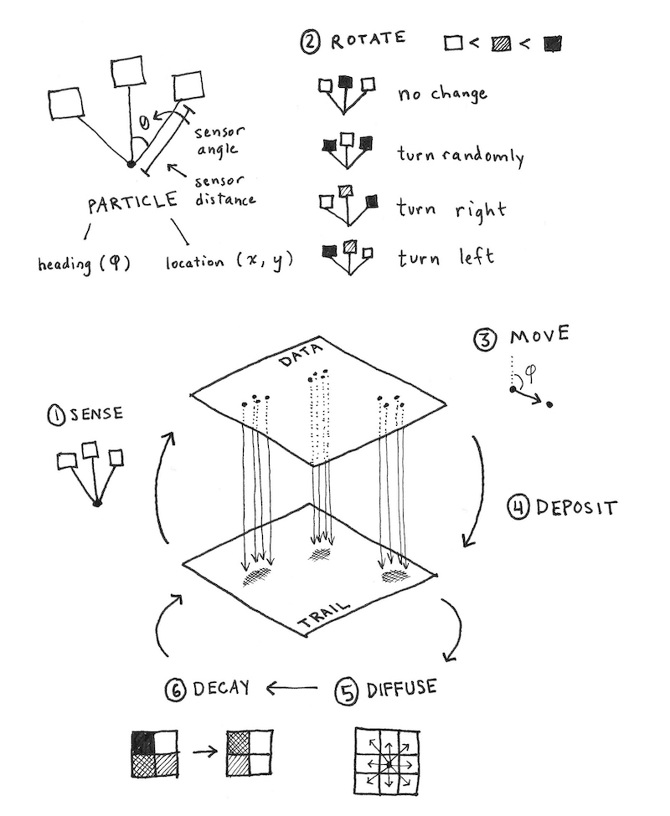 ② ROTATE □ < ▨ < ■
no change
turn randomly
turn right
turn left
θ
sensor
angle
sensor
distance
PARTICLE
heading (φ)
location (x, y)
① SENSE
DATA
③ MOVE
φ
④ DEPOSIT
TRAIL
⑥ DECAY
⑤ DIFFUSE